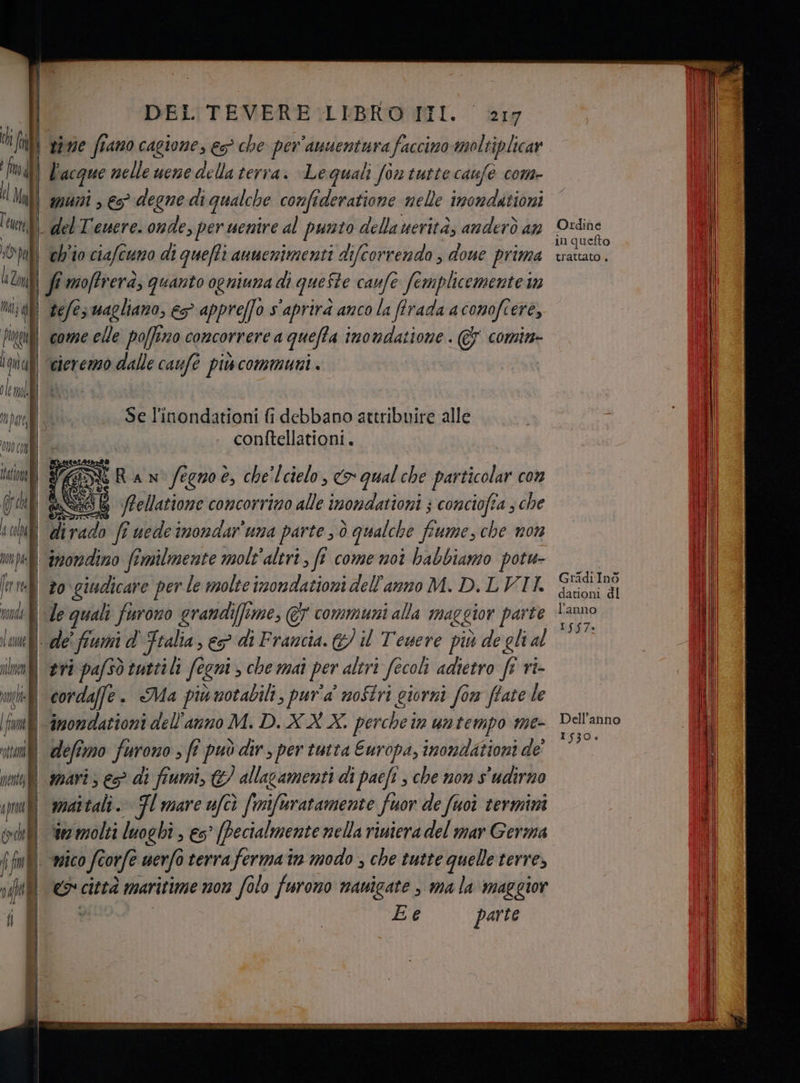 DEL TEVERE LIBRO III. 217
time ſiano cagione, & che per'auuentura faccino moltiplicar
l'acque nelle uene della terra. Lequali ſon tutte cauſe com-
muni, & degne di qualche conſideratione nelle inondationi
del Teuere. onde, per uenire al punto della uerità, anderò an
ch'io ciaſcuno di queſti auuenimenti diſcorrendo, doue prima
ſi moſtrerà, quanto ogniuna di queſte cauſe ſemplicemente in
teſe, uagliano, & appreſſo s'aprirà anco la ſtrada a conoſcere,
come elle poſſino concorrere a queſta inondatione. & comin-
cieremo dalle cauſe più communi.
Ordine
in queſto
trattato.
Se l'inondationi ſi debbano attribuire alle
conſtellationi.
GRan ſegno è, che'l cielo, & qual che particolar con
ſtellatione concorrino alle inondationi; concioſia, che
di rado ſi uede inondar'una parte, ò qualche fiume, che non
inondino ſimilmente molt'altri, ſi come noi habbiamo potu-
to giudicare per le molte inondationi dell'anno M. D. LVII.
le quali furono grandiſſime, & communi alla maggior parte
de' fiumi d'Italia, & di Francia. & il Teuere più de gli al
tri paſsò tutti li ſegni, che mai per altri ſecoli adietro ſi ri-
cordaſſe. Ma più notabili, pur'a' noſtri giorni ſon ſtate le
inondationi dell'anno M. D. XXX. perche in un tempo me-
deſimo furono, ſi può dir, per tutta Europa, inondationi de'
mari, & di fiumi, & allagamenti di paeſi, che non s'udirno
mai tali. Il mare uſcì ſmiſuratamente fuor de ſuoi termini
in molti luoghi, & ſpecialmente nella riuiera del mar Germa
nico ſcorſe uerſo terra ferma in modo, che tutte quelle terre,
& città maritime non ſolo furono nauigate, ma la maggior
Gradi Inõ
dationi dl
l'anno
1557.
Dell'anno
1530.
Ee parte